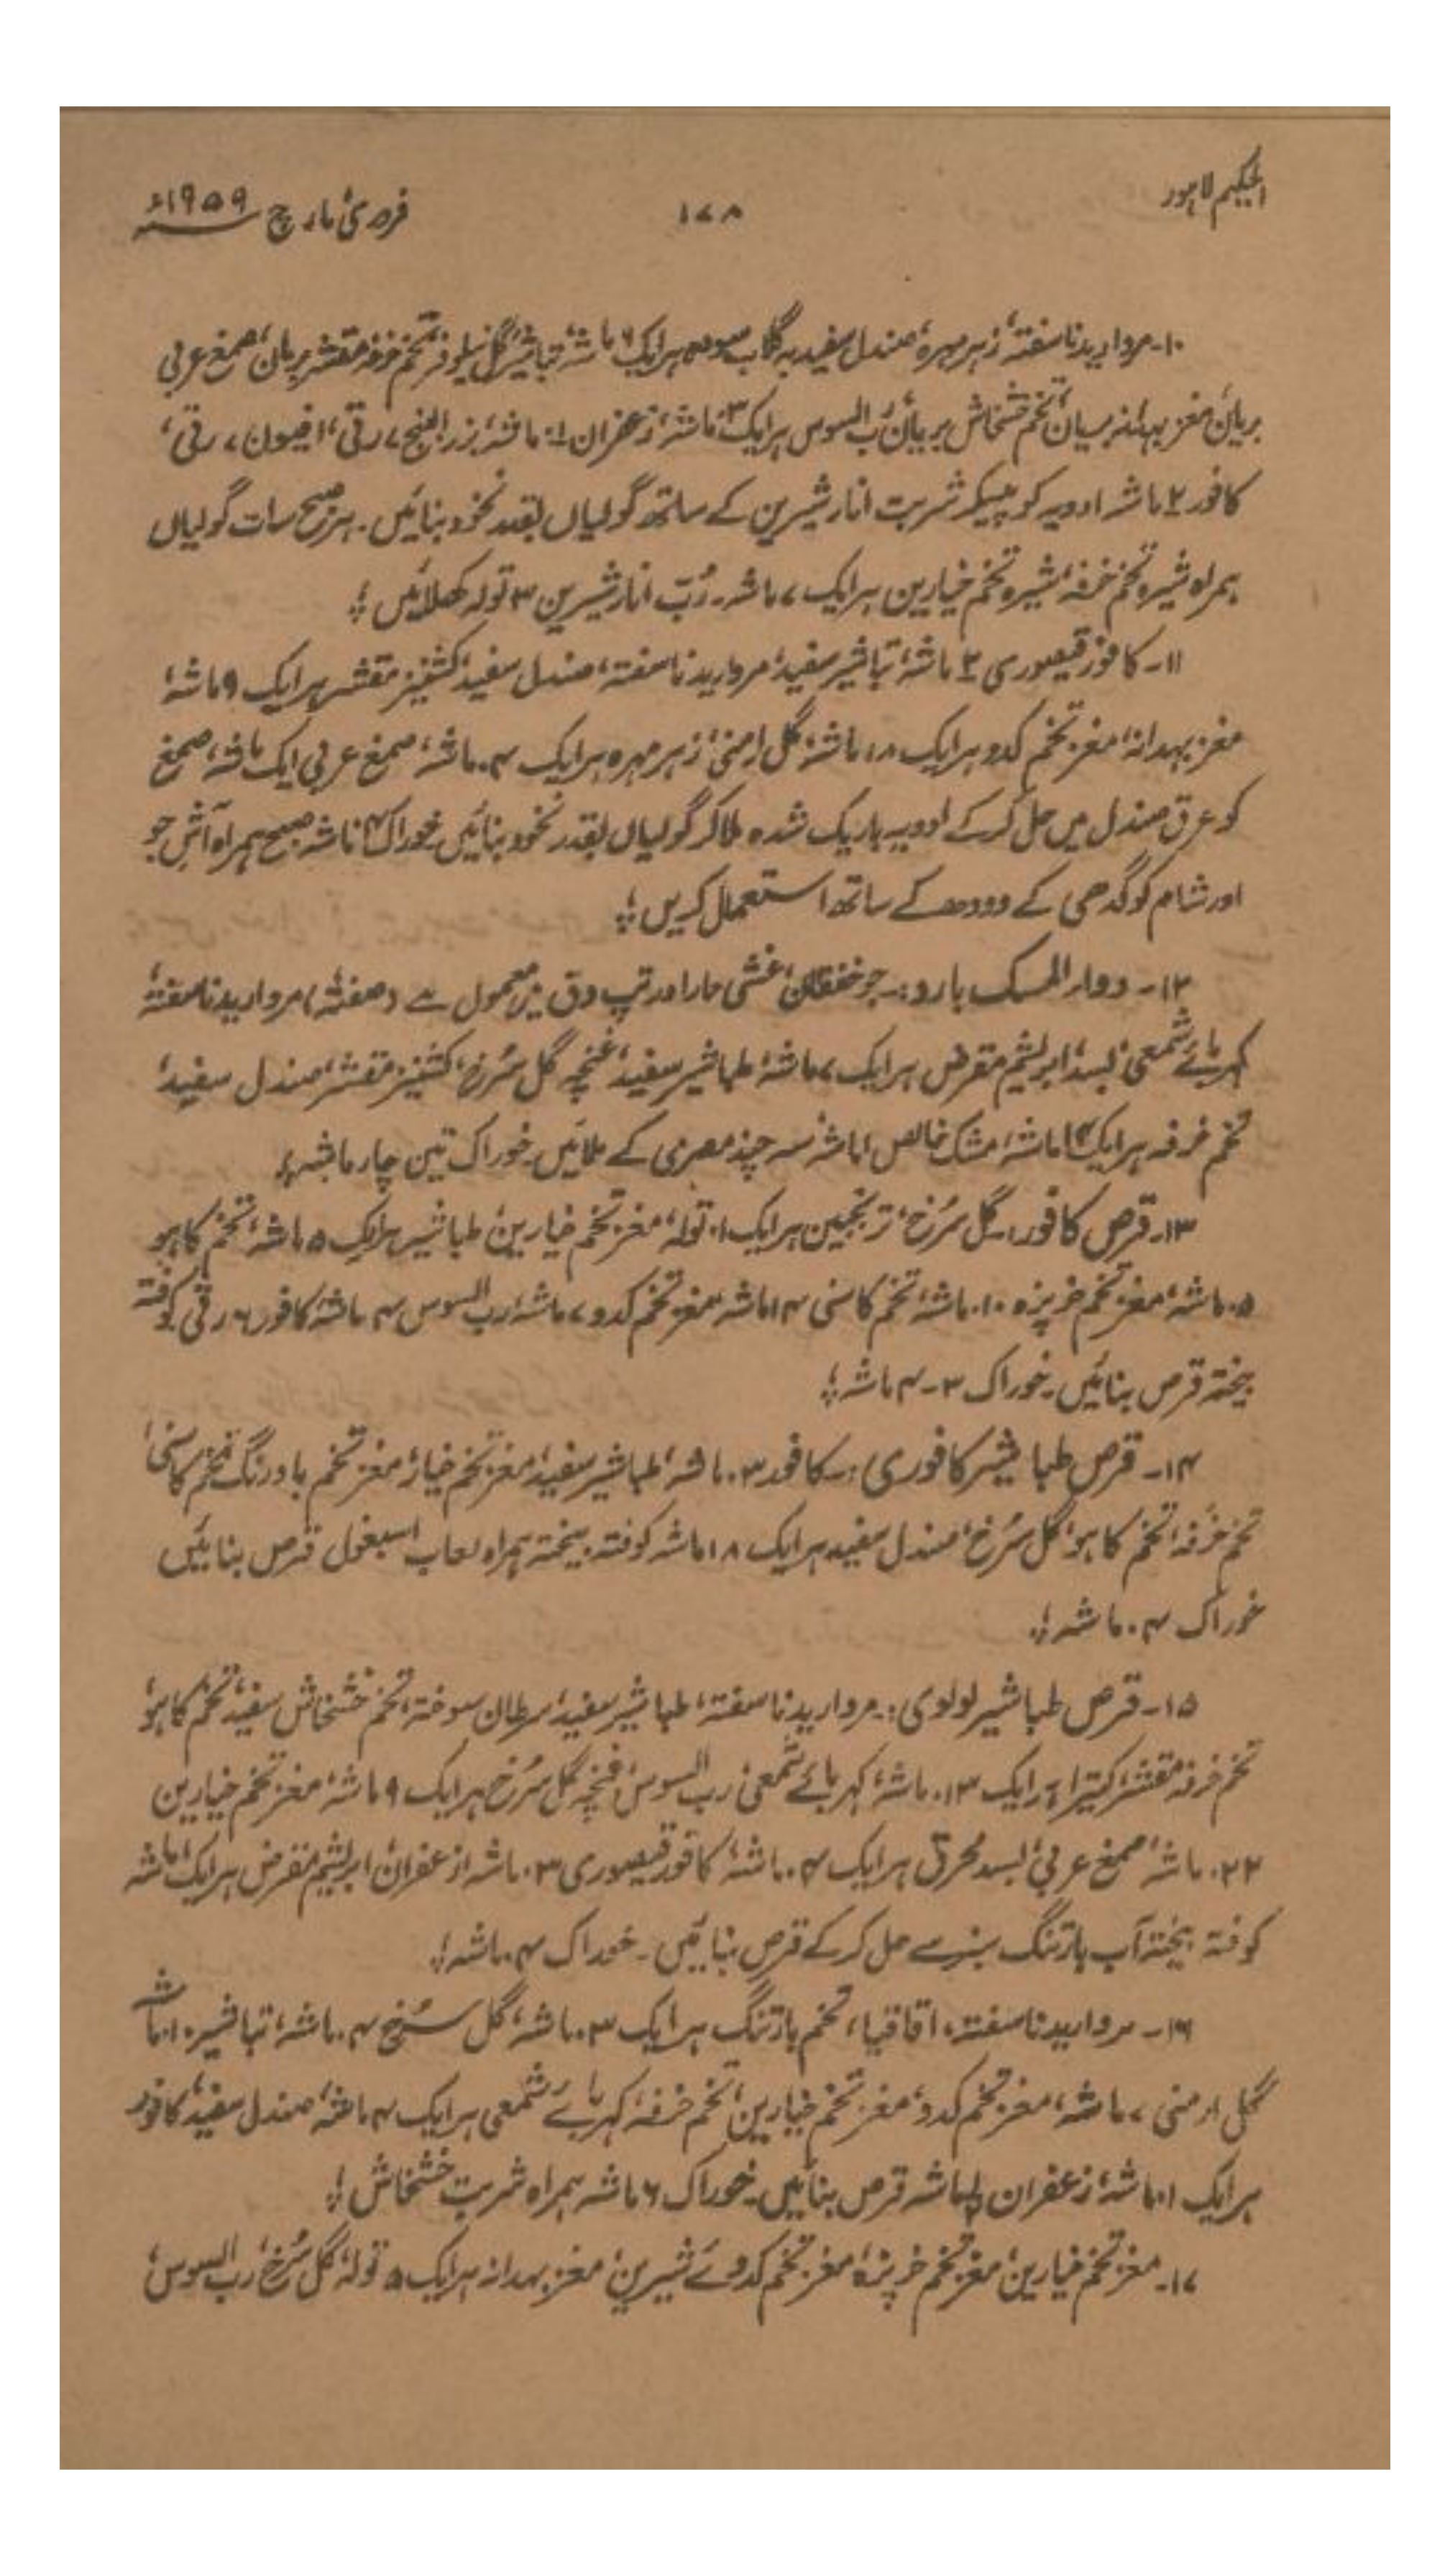 الحکیم لاہور
۱۷۸
فروری مارچ ۱۹۵۹ء
۱۰۔ مروارید ناسفتہ، زہر مہرہ، صندل سفید بہ گلاب سودہ ہر ایک ۶ ماشہ، تباشیر، گل نیلوفر، تخم خرفہ مقشر بریاں، صمغ عربی
بریاں، مغز بہدانہ بریاں، تخم خشخاش بریاں، رُب السوس ہر ایک ۳ ماشہ، زعفران ماشہ، بزرالبنج ۷ رتی، افیون ۷ رتی،
کافور ماشہ ادویہ کو پیسکر شربت انار شیریں کے ساتھ گولیاں بقدر نخود بنائیں۔ ہر صبح سات گولیاں
ہمراہ شیرہ تخم خرفہ، شیرہ تخم خیارین ہر ایک ۷ ماشہ۔ رُبّ انار شیریں ۳ تولہ کھلائیں ؛
۱۱۔ کافور قیصوری ماشہ، تباشیر سفید، مروارید ناسفتہ، صندل سفید، کشنیز مقشر ہر ایک ۹ ماشہ،
مغز بہدانہ، مغز تخم کدو ہر ایک ۱۸ ماشہ، گل ارمنی، زہر مہرہ ہر ایک ۴۔ ماشہ، صمغ عربی ایک ماشہ، صمغ
کو عرق صندل میں حل کرکے ادویہ باریک شدہ ملا کر گولیاں بقدر نخود بنائیں خوراک ۴ ماشہ صبح ہمراہ آش جو
اور شام کو گدھی کے دودھ کے ساتھ استعمال کریں ؛
۱۲۔ دوار المسک بارد :۔ جو خفقان، غشی حار اور تپ دق میں معمول ہے (صفتہ) مروارید ناسفتہ،
کہربائے شمعی، بسد، ابریشم مقرض ہر ایک ۷ ماشہ، طباشیر سفید، غنچہ گل سُرخ، کشنیز مقشر، صندل سفید،
تخم خرفہ ہر ایک ماشہ، مشک خالص ۱ ماشہ سہ چند مصری کے ملائیں۔ خوراک تین چار ماشہ ؛
۱۳۔ قرص کافور :۔ گل سُرخ، ترنجبین ہر ایک ۱۰ تولہ، مغز تخم خیارین، طباشیر ہر ایک ۵ ماشہ، تخم کاہو
۵۔ ماشہ، مغز تخم خرپزہ ۱۰۵۔ ماشہ، تخم کاسنی ۱۴ ماشہ، مغز تخم کدو ۷ ماشہ، رب السوس ۴ ماشہ کافور ۶ رتی کوفتہ
بیختہ قرص بنائیں۔ خوراک ۳۔۴ ماشہ ؛
۱۴۔ قرص طباشیر کافوری :۔ کافور ۳۔ ماشہ، طباشیر سفید، مغز تخم خیار، مغز تخم بادرنگ، تخم کاسنی،
تخم خُرفہ، تخم کاہو، گل سُرخ، صندل سفید ہر ایک ۱۸ ماشہ کوفتہ بیختہ ہمراہ لعاب اسبغول قرص بنائیں
خوراک ۴۔ ماشہ ؛
۱۵۔ قرص طباشیر لولوی :۔ مروارید ناسفتہ، طباشیر سفید، سرطان سوختہ، تخم خشخاش سفید، تخم کاہو،
تخم خرفہ مقشر، کتیرا ہر ایک ۱۳۔ ماشہ، کہربائے شمعی، رب السوس، غنچہ گل سُرخ ہر ایک ۹ ماشہ، مغز تخم خیارین
۲۲۔ ماشہ، صمغ عربی، بسد محرق ہر ایک ۴۔ ماشہ، کافور قیصوری ۳۔ ماشہ زعفران، ابریشم مقرض ہر ایک ماشہ
کوفتہ بیختہ آب بارتنگ سبز سے حل کرکے قرص بنائیں۔ خوراک ۴۔ ماشہ ؛
۱۶۔ مروارید ناسفتہ، اقاقیا، تخم بارتنگ ہر ایک ۳۔ ماشہ، گل سُرخ ۴۔ ماشہ، تباشیر ۱۰ ماشہ
گل ارمنی ۷ ماشہ، مغز تخم کدو، مغز تخم خیارین، تخم خرفہ، کہربائے شمعی ہر ایک ۴ ماشہ، صندل سفید، کافور
ہر ایک ۱۔ ماشہ، زعفران ماشہ قرص بنائیں۔ خوراک ۶ ماشہ ہمراہ شربت خشخاش ؛
۱۷۔ مغز تخم خیارین، مغز تخم خرپزہ، مغز تخم کدوئے شیریں، مغز بہدانہ ہر ایک ۵ تولہ، گل سُرخ، رب السوس،